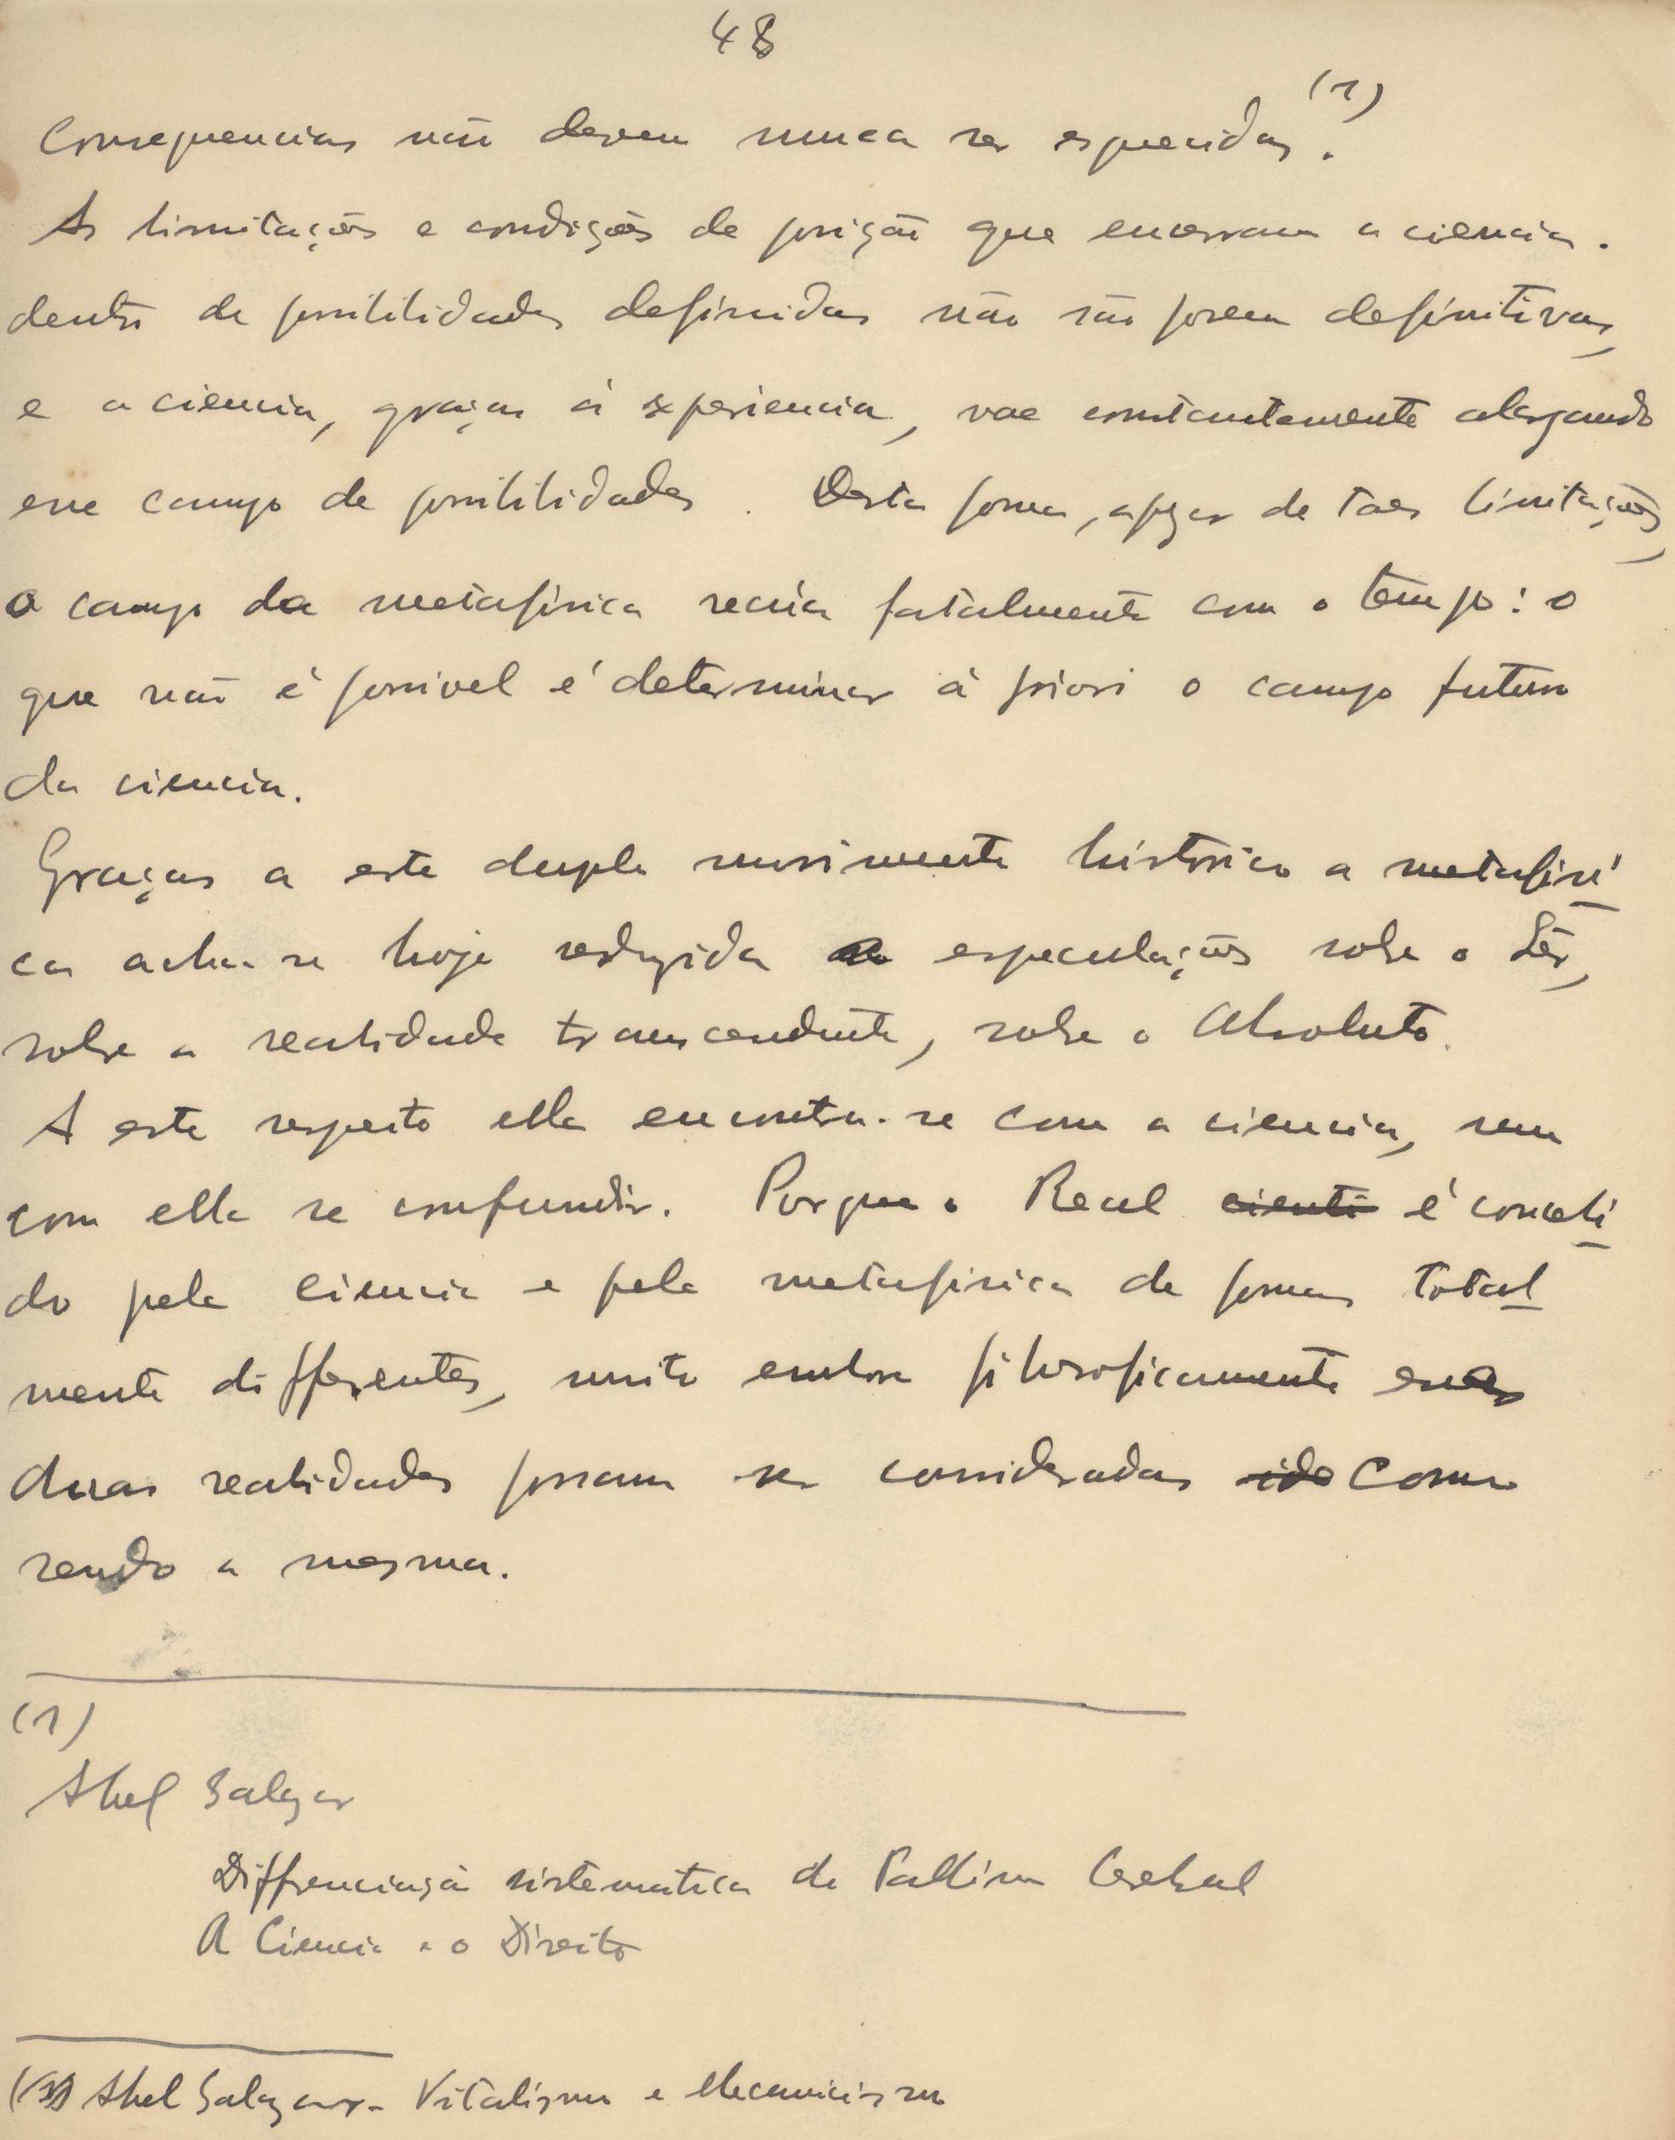 48
Consequencias não devem nunca ser esquecidas. (1)
As limitações e condições de posição que encerram a ciencia.
dentro de possibilidades definidas não são porem definitivas,
e a ciencia, graças á experiencia, vae constantemente alargando
esse campo de possibilidades. Desta forma, apezar de taes limitações,
o campo da metafisica recúa fatalmente com o tempo: o
que não é possivel é determinar á priori o campo futuro
da ciencia.
Graças a este duplo movimento historico a metafisi
ca acha-se hoje reduzida a especulações sobre o Sêr,
sobre a realidade transcendente, sobre o Absoluto.
A este respeito ella encontra-se com a ciencia, sem
com ella se confundir. Porque o Real cienti é concebi
do pela ciencia e pela metafisica de formas total
mente differentes, muito embora filosoficamente essas
duas realidades possam ser consideradas ide como
sendo a mesma.
(1)
Abel Salazar
Differenciação sistematica do Pallium Cerebral
A Ciencia e o Direito
Abel Salazar - Vitalismo e Mecanicismo